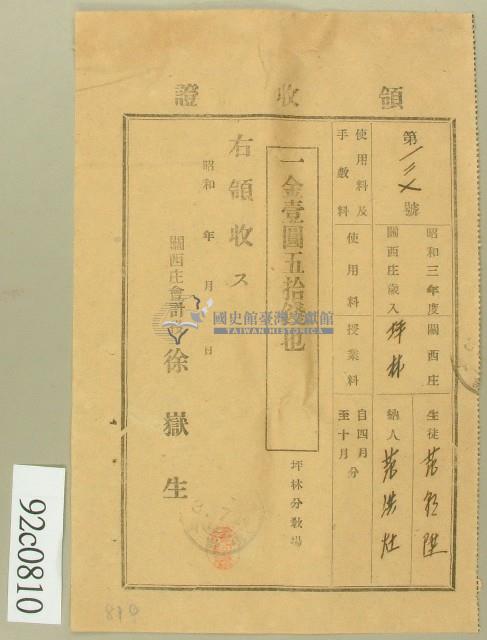 領收證
第一二乂號
昭和三年度關西庄
生徒
關西庄歲入
坪林
納人
使用料及
使用料
授業料
手數料
自四月
至十月
分
一金壹圓五拾錢也
坪林分教場
右領收ス
昭和 年 月 日
關西庄會計役
徐嶽生
國史館臺灣文獻館
TAIWAN HISTORICA
92c0810
810